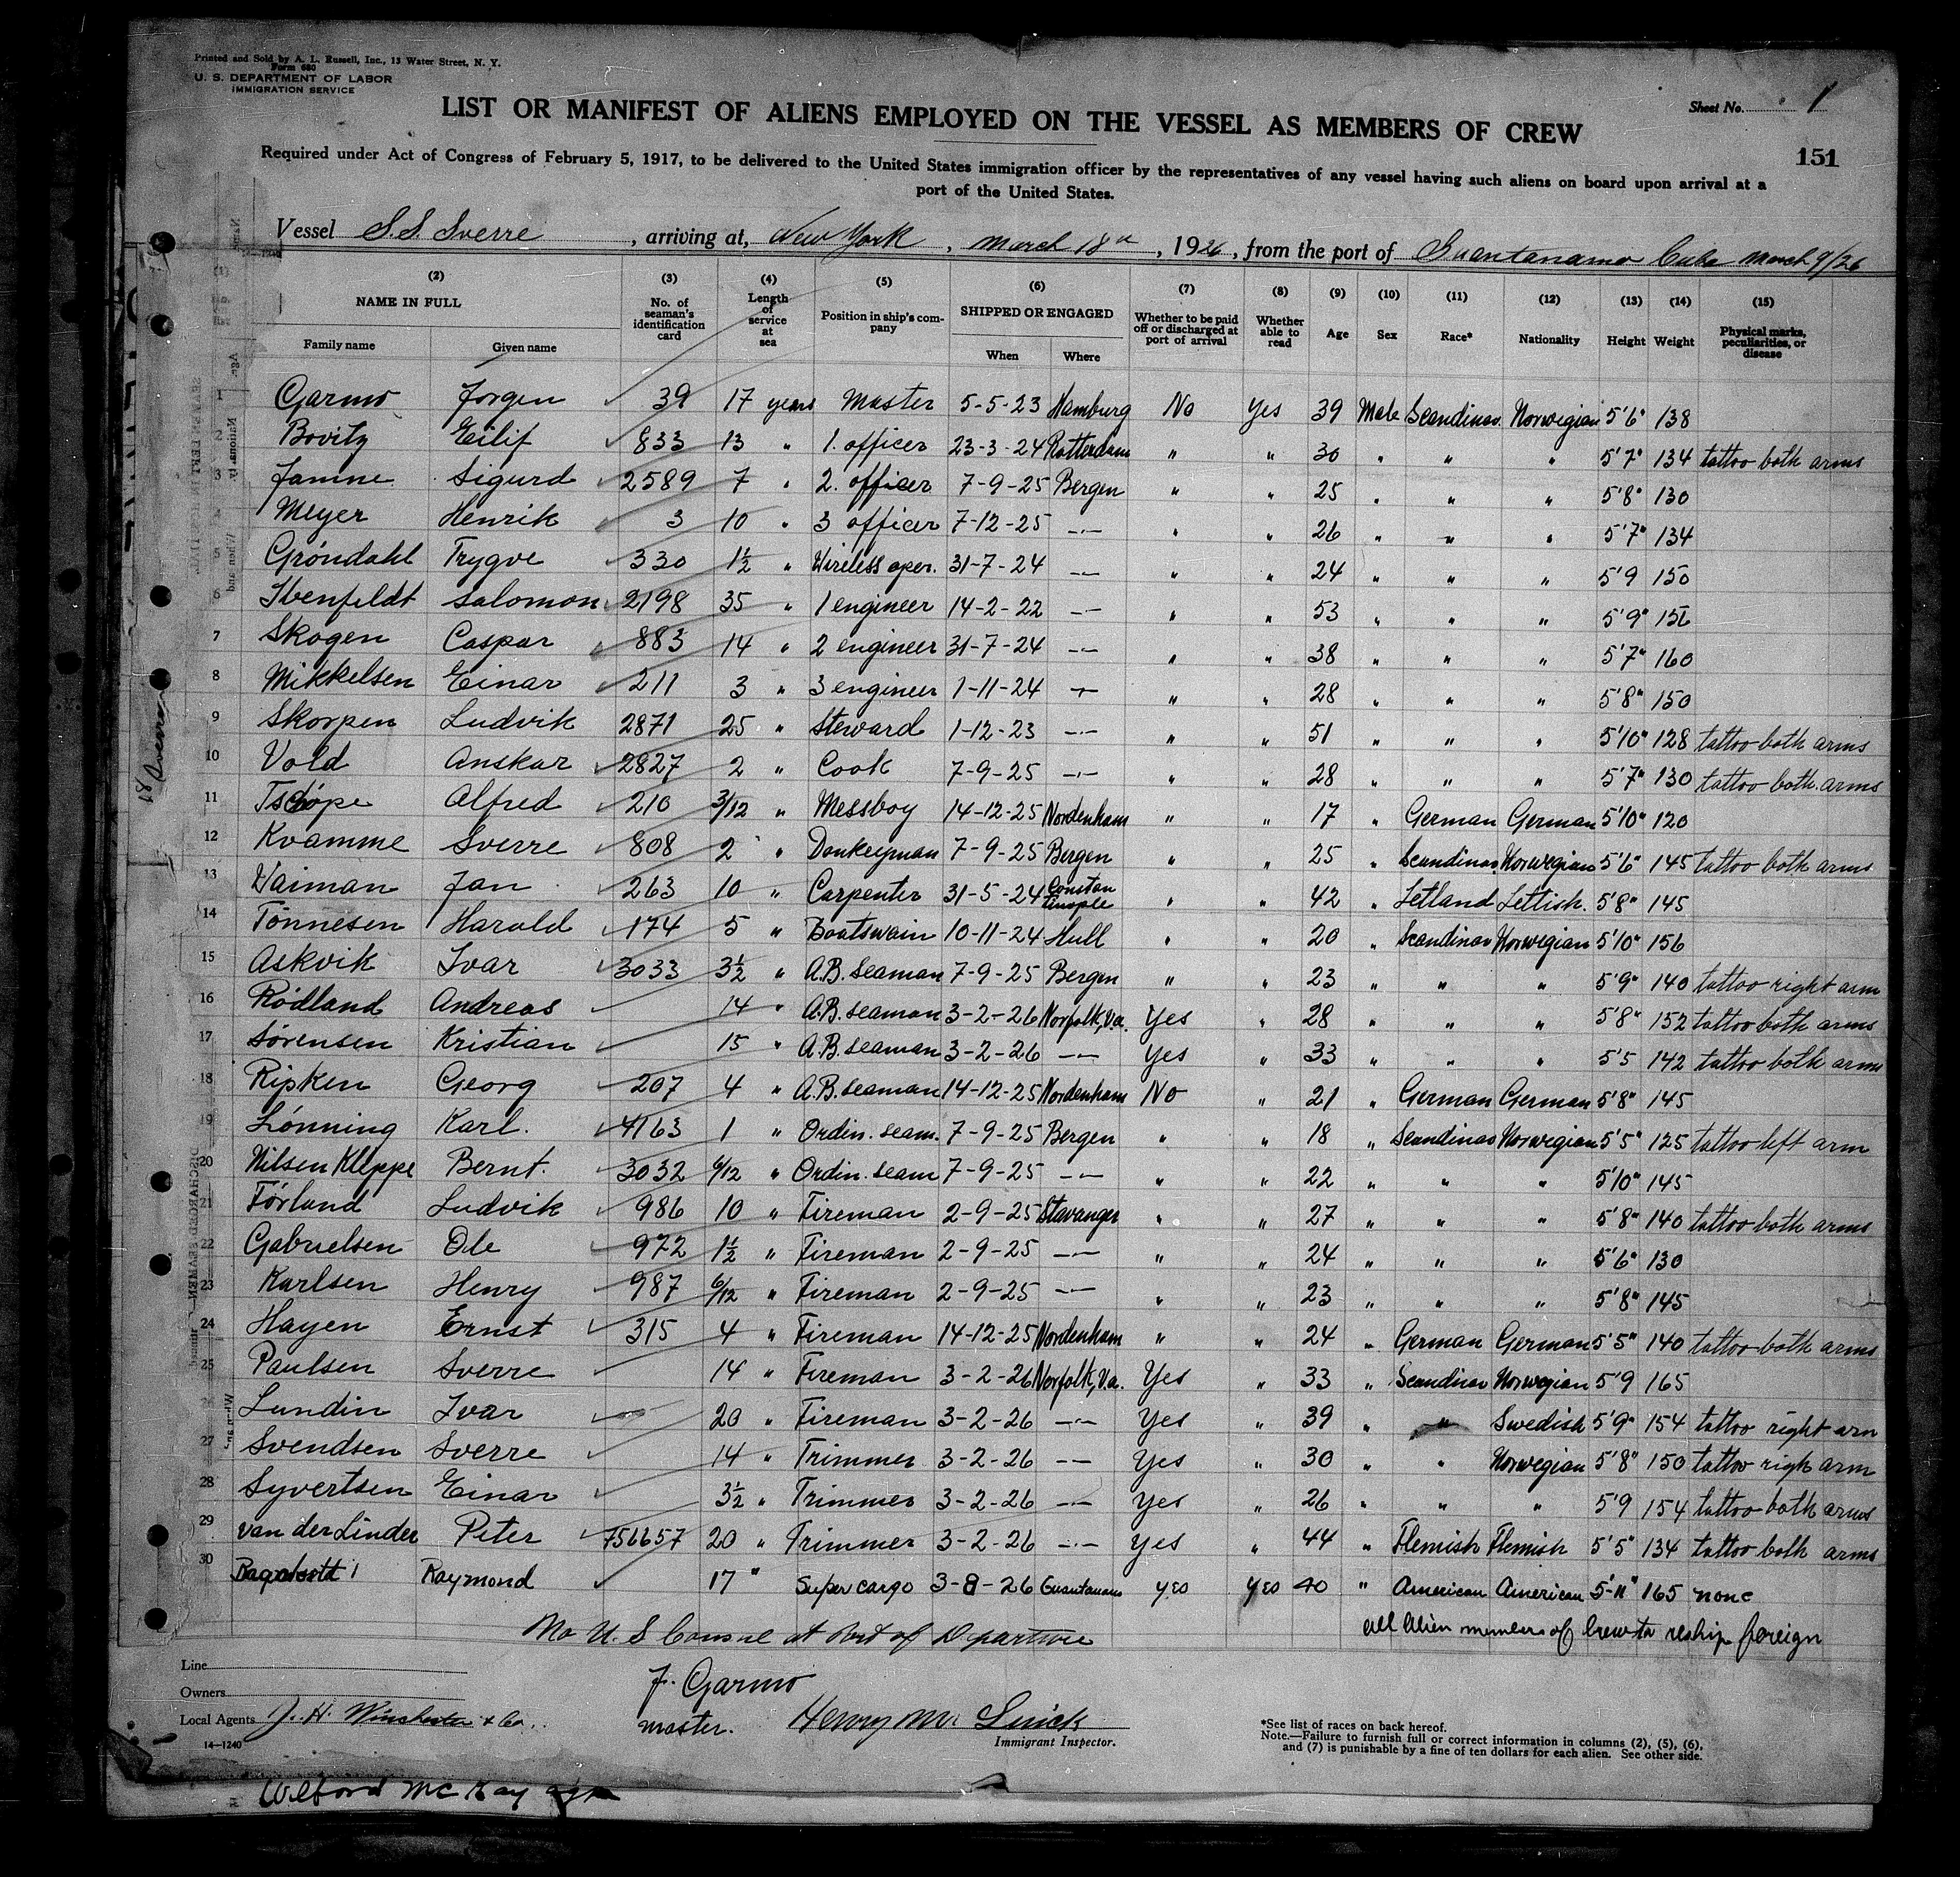 Printed and Sold by A. L. Russell, Inc., 13 Water Street, N. Y.
Form 680
U. S. DEPARTMENT OF LABOR
IMMIGRATION SERVICE
Sheet No. 1
LIST OR MANIFEST OF ALIENS EMPLOYED ON THE VESSEL AS MEMBERS OF CREW
151
Required under Act of Congress of February 5, 1917, to be delivered to the United States immigration officer by the representatives of any vessel having such aliens on board upon arrival at a
port of the United States.
Vessel S.S. Sverre, arriving at, New York, March 18th, 1926, from the port of Guantanamo Cuba March 9/26
(1) (2) (3) (4) (5) (6) (7) (8) (9) (10) (11) (12) (13) (14) (15)
NAME IN FULL No. of seaman's identification card Length of service at sea Position in ship's company SHIPPED OR ENGAGED Whether to be paid off or discharged at port of arrival Whether able to read Age Sex Race* Nationality Height Weight Physical marks, peculiarities, or disease
Family name Given name When Where
1 Garmo Jorgen 39 17 years Master 5-5-23 Hamburg No Yes 39 Male Scandinav. Norwegian 5'6" 138
2 Bovitz Eilif 833 13 " 1. officer 23-3-24 Rotterdam " " 30 " " " 5'7" 134 tattoo both arms
3 Jamne Sigurd 2589 7 " 2. officer 7-9-25 Bergen " " 25 " " " 5'8" 130
4 Meyer Henrik 3 10 " 3 officer 7-12-25 -"- " " 26 " " " 5'7" 134
5 Gröndahl Trygve 330 1½ " Wireless oper. 31-7-24 -"- " " 24 " " " 5'9 150
6 Ibenfeldt Salomon 2198 35 " 1 engineer 14-2-22 -"- " " 53 " " " 5'9" 156
7 Skogen Caspar 883 14 " 2 engineer 31-7-24 -"- " " 38 " " " 5'7" 160
8 Mikkelsen Einar 211 3 " 3 engineer 1-11-24 -"- " " 28 " " " 5'8" 150
9 Skorpen Ludvik 2871 25 " Steward 1-12-23 -"- " " 51 " " " 5'10" 128 tattoo both arms
10 Vold Anskar 2827 2 " Cook 7-9-25 -"- " " 28 " " " 5'7" 130 tattoo both arms
11 Alfred 210 3/12 " Messboy 14-12-25 Nordenham " " 17 " German German 5'10" 120
12 Kvamme Sverre 808 2 " Donkeyman 7-9-25 Bergen " " 25 " Scandinav. Norwegian 5'6" 145 tattoo both arms
13 Vaiman Jan 263 10 " Carpenter 31-5-24 Constantinople " " 42 " Letland Lettish. 5'8" 145
14 Tønnesen Harald 174 5 " Boatswain 10-11-24 Hull " " 20 " Scandinav Norwegian 5'10" 156
15 Askvik Ivar 3033 3½ " A.B. Seaman 7-9-25 Bergen " " 23 " " " 5'9" 140 tattoo right arm
16 Rødland Andreas 14 " A.B. Seaman 3-2-26 Norfolk, Va. Yes " 28 " " " 5'8" 152 tattoo both arms
17 Sørensen Kristian 15 " A.B. Seaman 3-2-26 -"- Yes " 33 " " " 5'5 142 tattoo both arms
18 Ripken Georg 207 4 " A.B. seaman 14-12-25 Nordenham No " 21 " German German 5'8" 145
19 Lønning Karl. 4163 1 " Ordin. seam. 7-9-25 Bergen " " 18 " Scandinav Norwegian 5'5" 125 tattoo left arm
20 Nilsen Kleppe Bernt. 3032 6/12 " Ordin. seam 7-9-25 -"- " " 22 " " " 5'10" 145
21 Førland Ludvik 986 10 " Fireman 2-9-25 Stavanger " " 27 " " " 5'8" 140 tattoo both arms
22 Gabrielsen Ole 972 1½ " Fireman 2-9-25 -"- " " 24 " " " 5'6" 130
23 Karlsen Henry 987 6/12 " Fireman 2-9-25 -"- " " 23 " " " 5'8" 145
24 Hayen Ernst 315 4 " Fireman 14-12-25 Nordenham " " 24 " German German 5'5" 140 tattoo both arms
25 Paulsen Sverre 14 " Fireman 3-2-26 Norfolk, Va. Yes " 33 " Scandinav Norwegian 5'9 165
26 Lundin Ivar 20 " Fireman 3-2-26 -"- Yes " 39 " " Swedish 5'9" 154 tattoo right arm
27 Svendsen Sverre 14 " Trimmer 3-2-26 -"- Yes " 30 " " Norwegian 5'8" 150 tattoo righ arm
28 Syvertsen Einar 3½ " Trimmer 3-2-26 -"- Yes " 26 " " " 5'9 154 tattoo both arms
29 van der Linder Peter 756657 20 " Trimmer 3-2-26 -"- Yes " 44 " Flemish Flemish 5'5" 134 tattoo both arms
30 Raymond 17 " Supercargo 3-8-26 Guantanamo yes yes 40 " American American 5'-11" 165 none
No U.S Consul at Port of Departure
all alien members of Crew to reship foreign
Line
Owners
Local Agents J. H. Winchester & Co.
14—1240
J. Garmo
master.
Henry M.
Immigrant Inspector.
*See list of races on back hereof.
Note.—Failure to furnish full or correct information in columns (2), (5), (6),
and (7) is punishable by a fine of ten dollars for each alien. See other side.
Wilford McKay